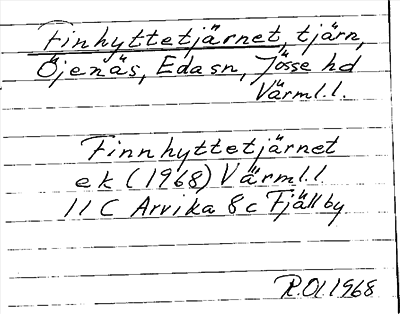 Finhyttetjärnet, tjärn,
Öjenäs, Eda sn, Jösse hd
Värml.l.
Finnhyttetjärnet
ek (1968) Värml.l.
11 C Arvika 8c Fjällby
R.Ol.1968